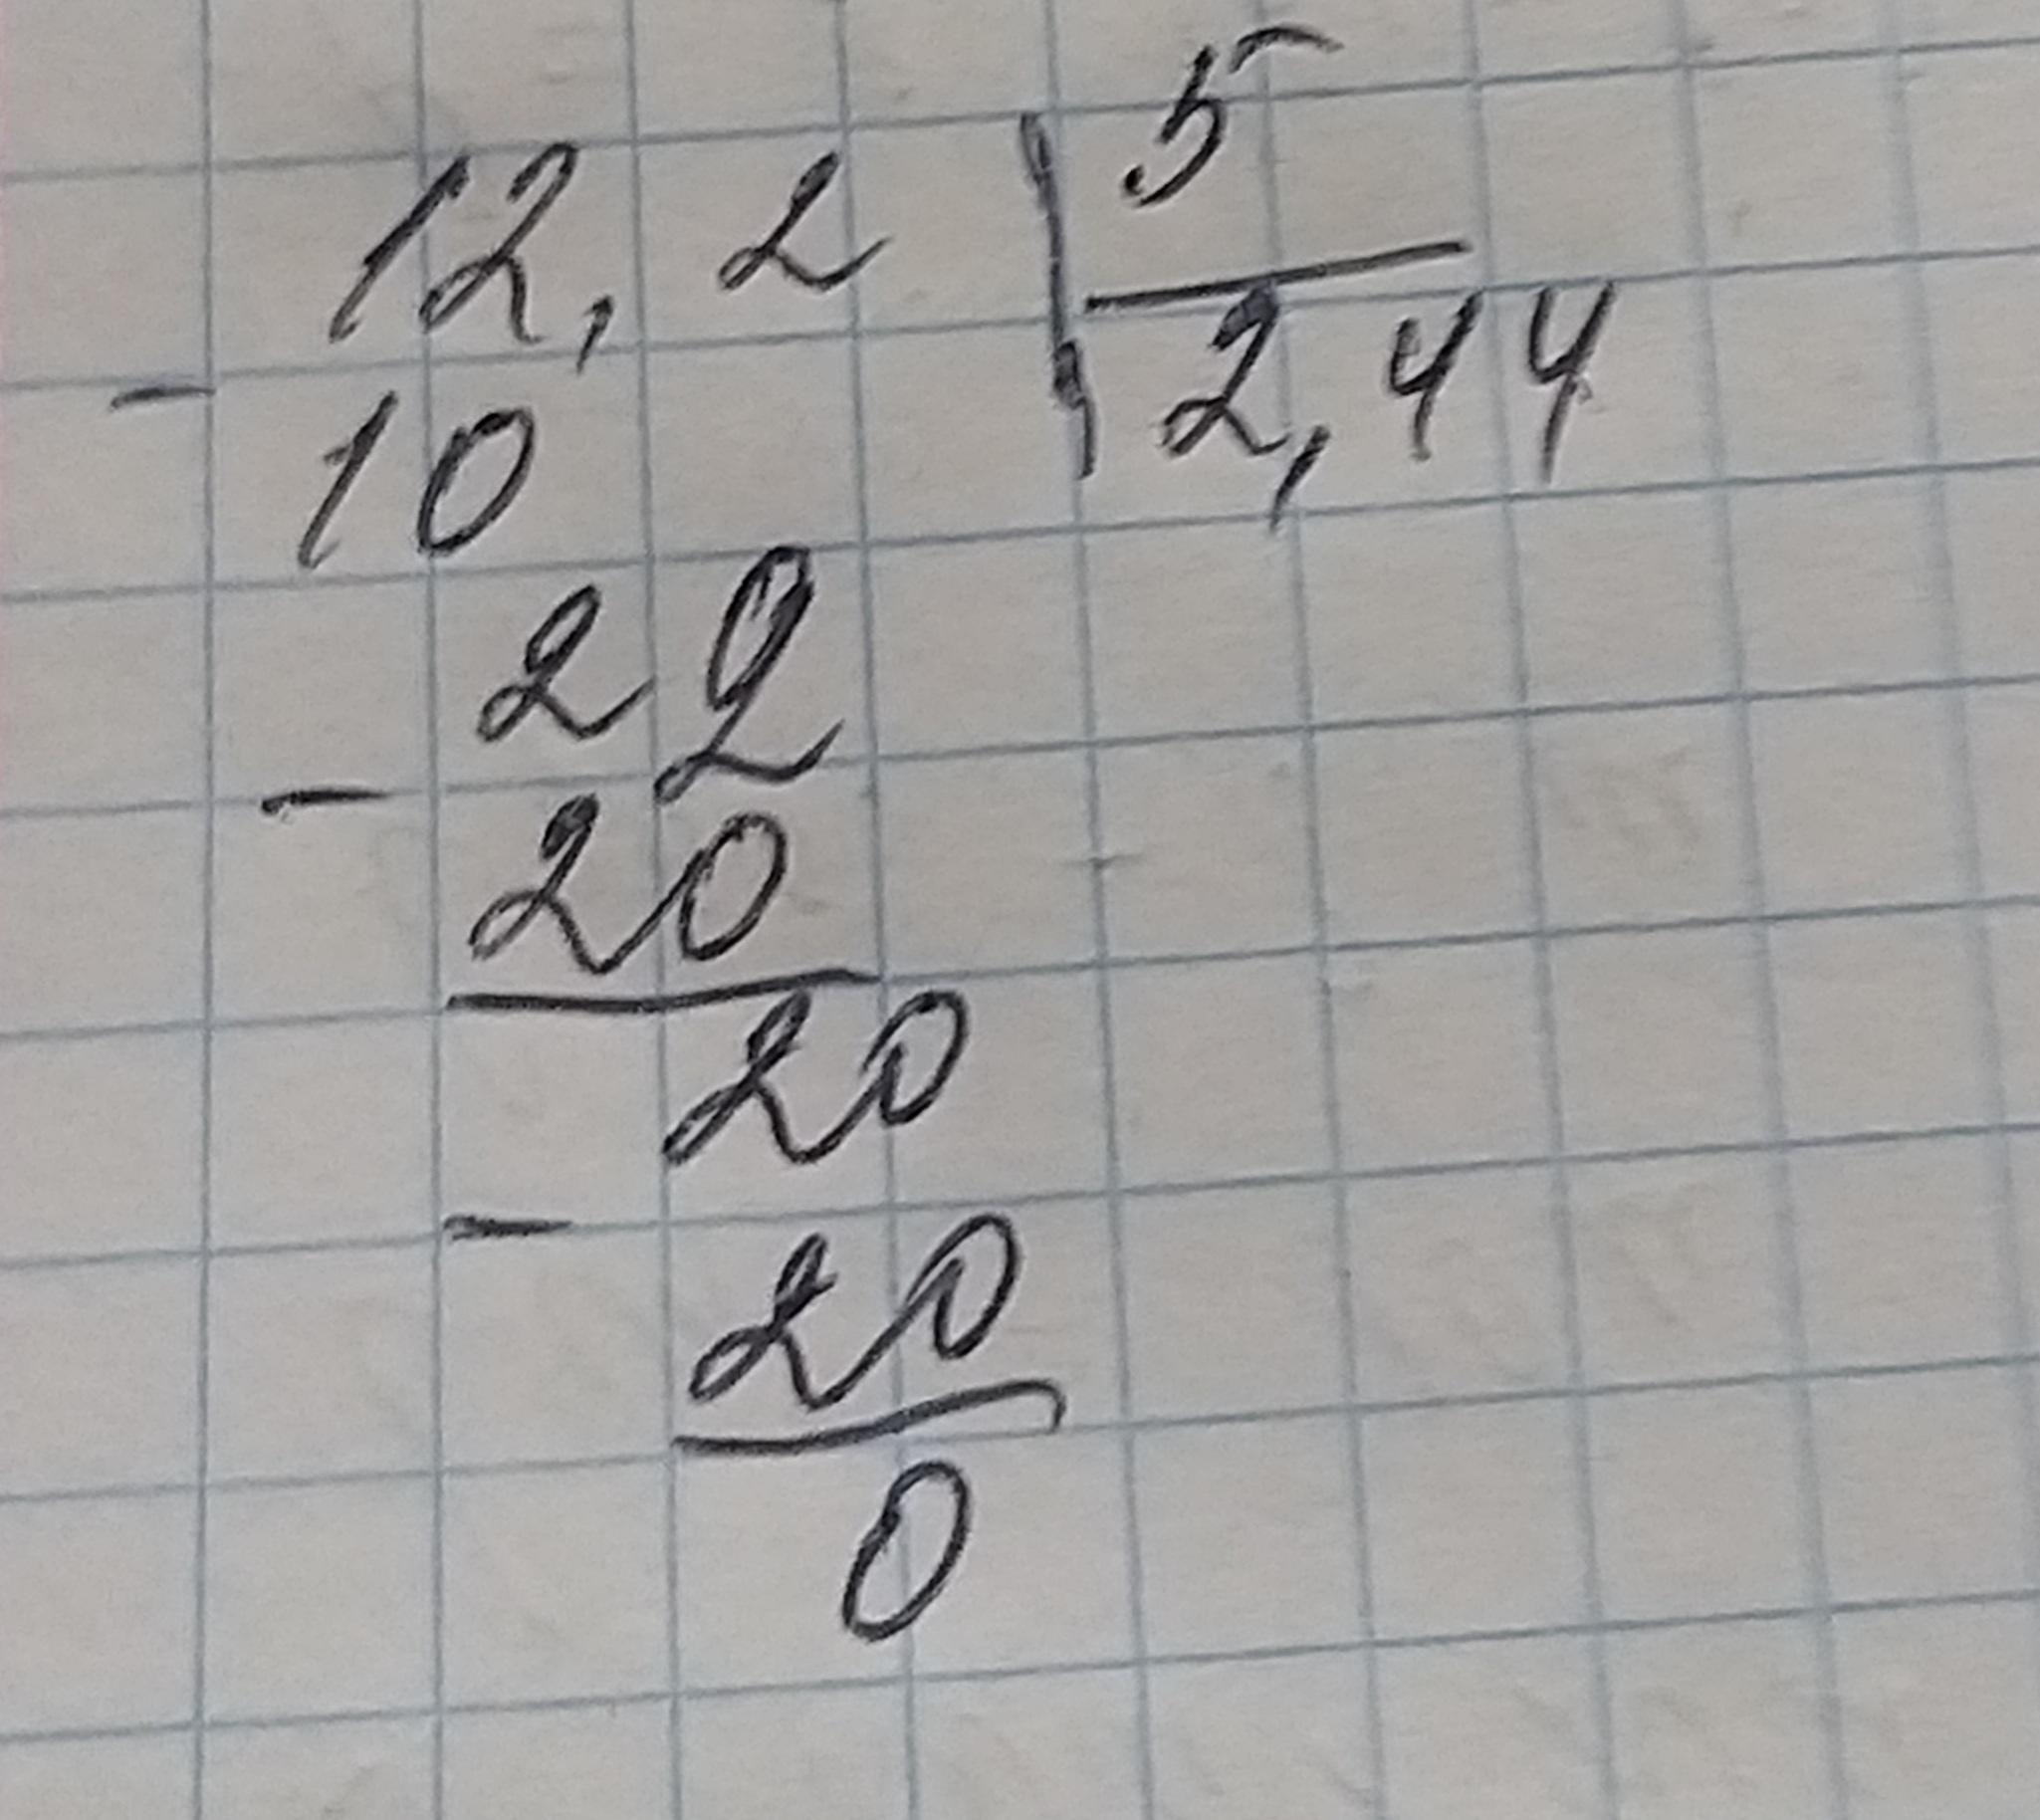 12,2 5
2,44
- 10
22
- 20
20
- 20
0